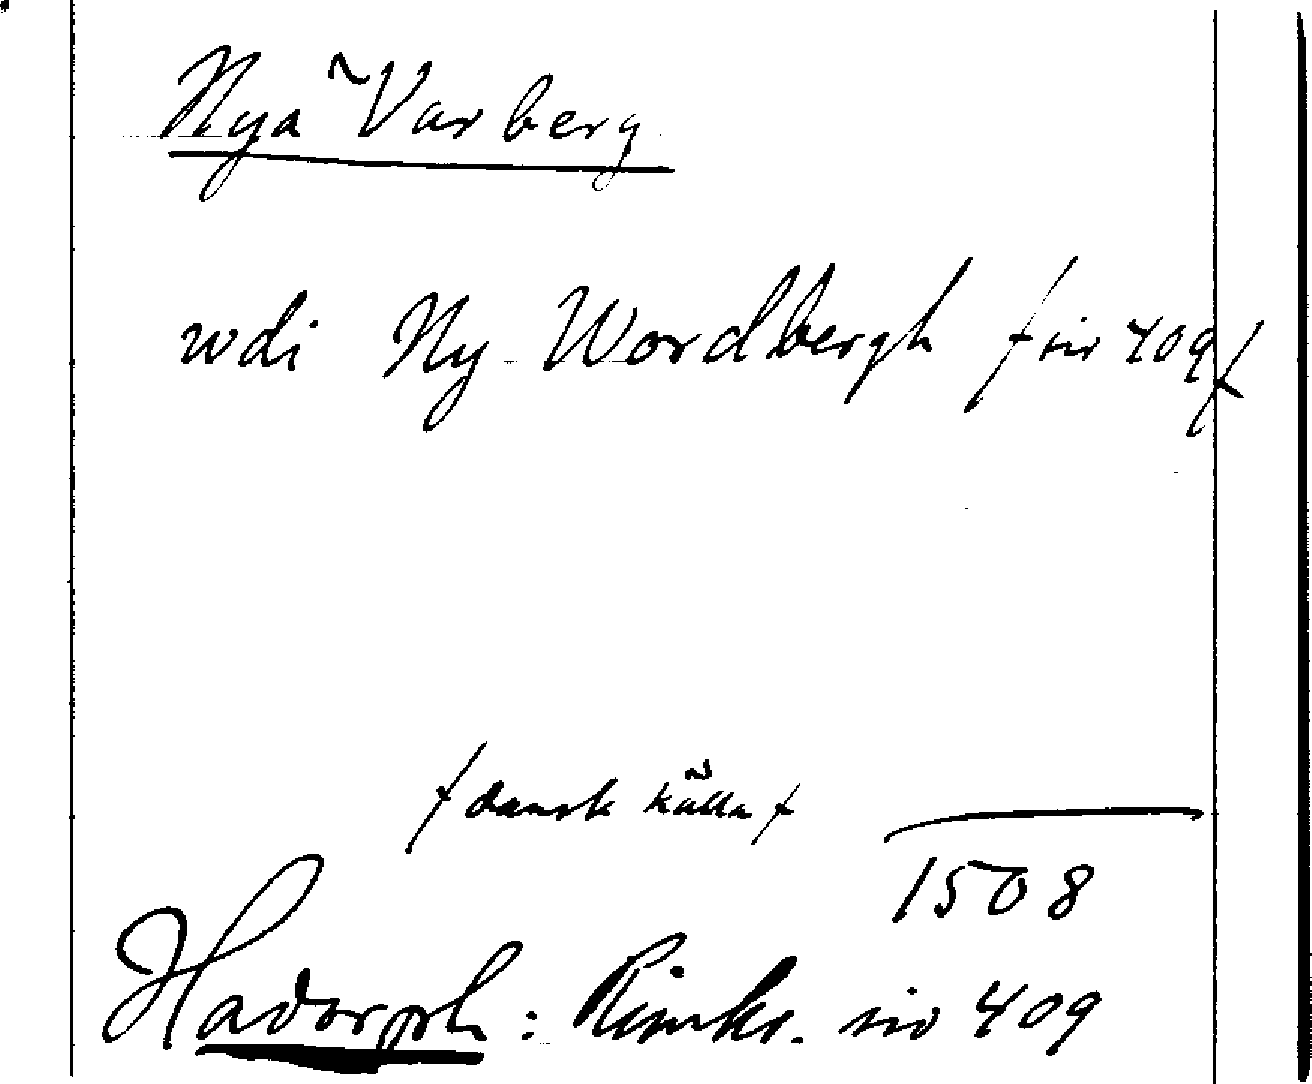 Nya Varberg
wdi Ny Wordbergh / sid 409 /
/ dansk källa /
1508
Hadorph: Rimkr. sid 409